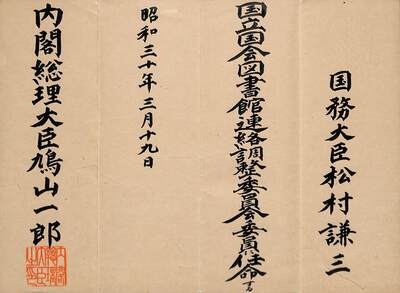 国務大臣松村謙三
国立国会図書館連絡調整委員会委員任命する
昭和三十年三月十九日
内閣総理大臣鳩山一郎